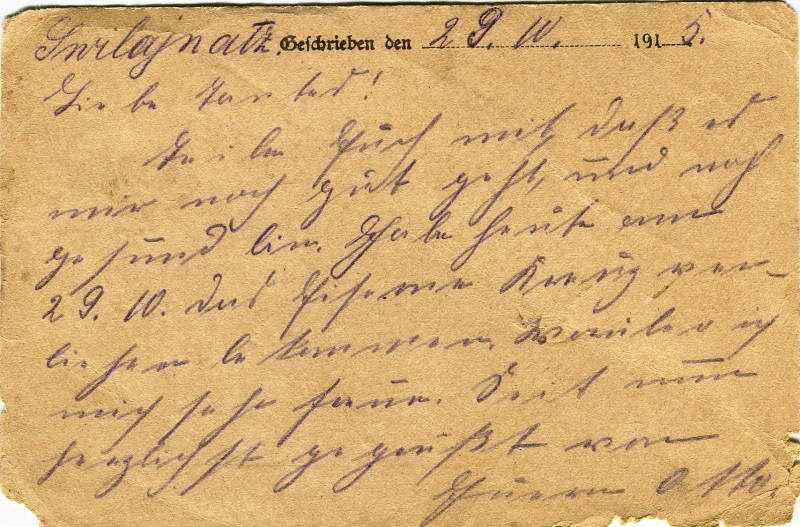 Swilajnatz. Geschrieben den 29. 10. 1915.
Liebe Tanted!
Teile Euch mit, daß es
mir noch gut geht, und noch
gesund bin. Habe heute am
29. 10. das Eiserne Kreuz ver-
liehen bekommen. Worüber ich
mich sehr freue. Seit nun
herzlichst gegrüßt von
Euern Otto.